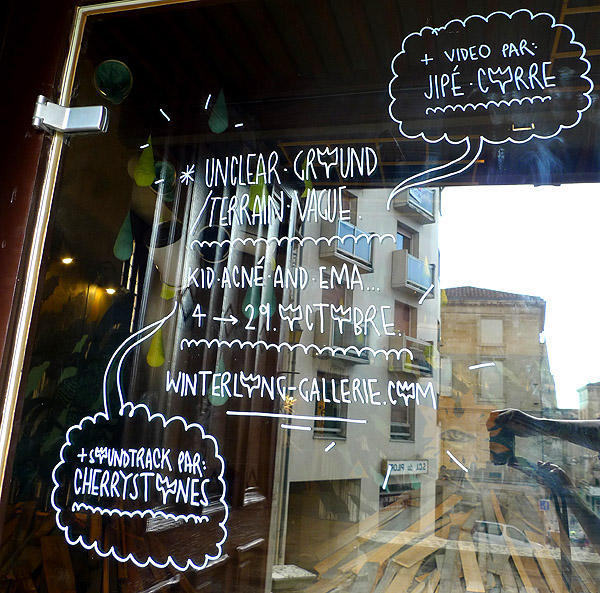 + VIDEO PAR:
JIPÉ·CORRE
* UNCLEAR·GROUND
/TERRAIN·VAGUE.
KID·ACNÉ·AND·EMA...
4 → 29.OCTOBRE.
WINTERLONG-GALLERIE.COM
+SOUNDTRACK PAR:
CHERRYSTONES